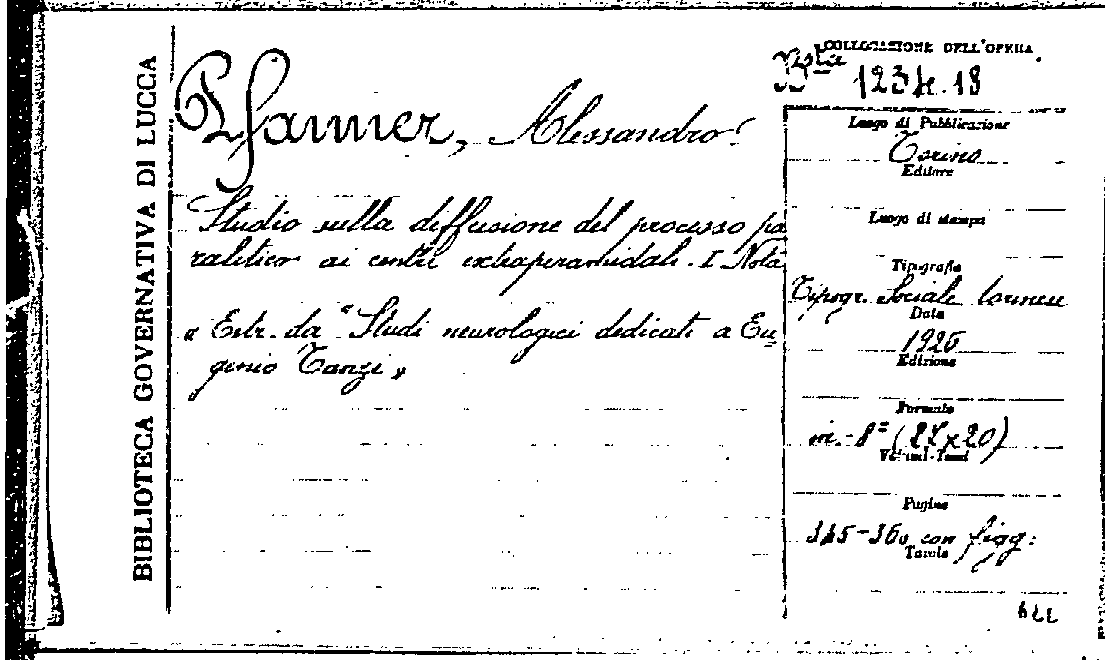 BIBLIOTECA GOVERNATIVA DI LUCCA
Pfanner, Alessandro.
Studio sulla diffusione del processo pa
ralitico ai centri extrapiramidali. I Nota
« Estr. da "Studi neurologici dedicati a Eu=
genio Tanzi »
COLLOCAZIONE DELL'OPERA
Bsta
1234.18
Luogo di Pubblicazione
Torino
Editore
Luogo di stampa
Tipografia
Tipogr. Sociale torinese
Data
1926
Edizione
Formato
in-8° (27x20)
Volumi-Tomi
Pagine
con figg:
Tavole